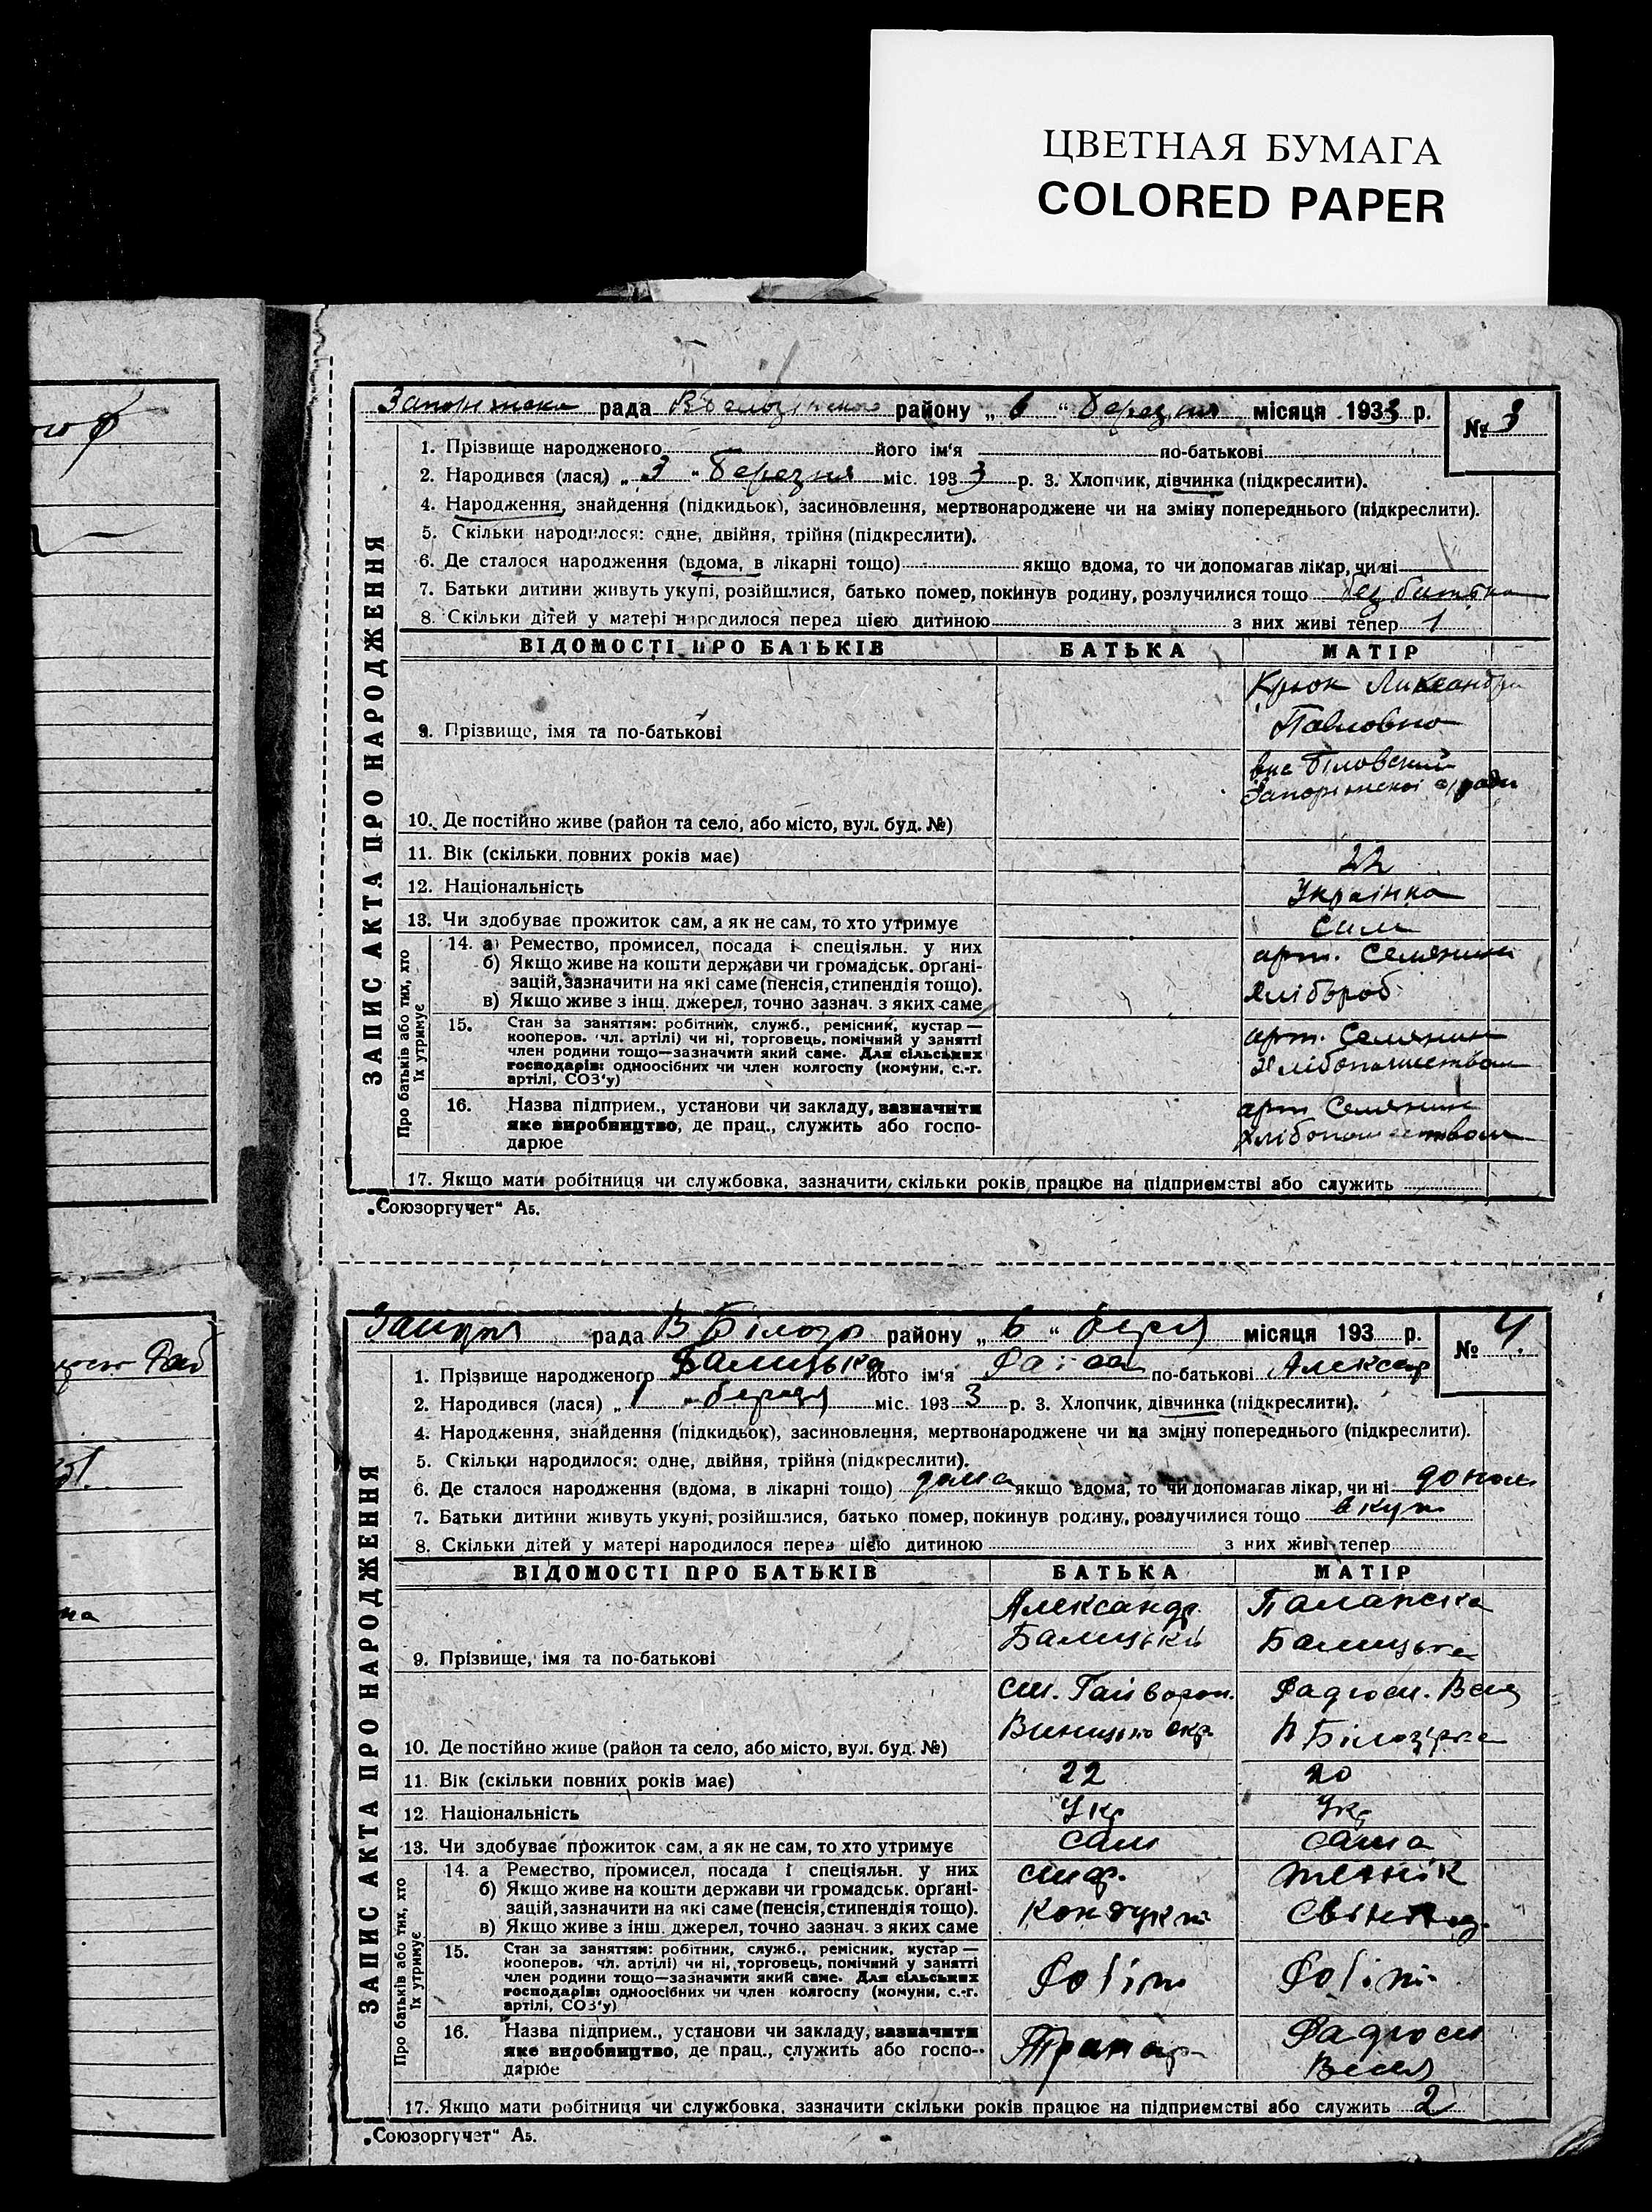 ЦВЕТНАЯ БУМАГА
COLORED PAPER
рада району „ 6 “ Березня місяця 1933 р.
№ 3
1. Прізвище народженого його ім‘я по-батькові
2. Народився (лася) „ 3 “ Березня міс. 1933 р. 3. Хлопчик, дівчинка (підкреслити).
4. Народження, знайдення (підкидьок), засиновлення, мертвонароджене чи на зміну попереднього (підкреслити).
5. Скільки народилося: одне, двійня, трійня (підкреслити).
6. Де сталося народження (вдома, в лікарні тощо) якщо вдома, то чи допомагав лікар, чи ні
7. Батьки дитини живуть укупі, розійшлися, батько помер, покинув родину, розлучилися тощо без батька
8. Скільки дітей у матері народилося перед цією дитиною з них живі тепер 1
ЗАПИС АКТА ПРО НАРОДЖЕННЯ
ВІДОМОСТІ ПРО БАТЬКІВ БАТЬКА МАТІР
Крюк
Павловна
9. Прізвище, імя та по-батькові
Запоріжскоі с/ради
10. Де постійно живе (район та село, або місто, вул. буд. №)
11. Вік (скільки повних років має) 22
12. Національність Українка
13. Чи здобуває прожиток сам, а як не сам, то хто утримує Сам
Про батьків або тих, хто їх утримує
14. а) Ремество, промисел, посада і спеціяльн. у них арт. Селянин
б) Якщо живе на кошти держави чи громадськ. органі-
зацій, зазначити на які саме (пенсія, стипендія тощо). Хлібороб
в) Якщо живе з інш. джерел, точно зазнач. з яких саме
15. Стан за заняттям: робітник, служб., ремісник, кустар —
кооперов. чл. артілі) чи ні, торговець, помічний у занятті арт. Селянин
член родини тощо—зазначити який саме. Для сільських
господарів: одноосібних чи член колгоспу (комуни, с.-г.
артілі, СОЗ‘у)
16. Назва підприєм., установи чи закладу, зазначити арт Селянин
яке виробництво, де прац., служить або госпо-
дарює
17. Якщо мати робітниця чи службовка, зазначити скільки років працює на підприємстві або служить
„Союзоргучет“ А5.
рада В Білозр району „ 6 “ місяця 193 р.
№ 4.
1. Прізвище народженого Балицька його ім‘я по-батькові Алексар
2. Народився (лася) „ 1 “ міс. 1933 р. 3. Хлопчик, дівчинка (підкреслити).
4. Народження, знайдення (підкидьок), засиновлення, мертвонароджене чи на зміну попереднього (підкреслити).
5. Скільки народилося: одне, двійня, трійня (підкреслити).
6. Де сталося народження (вдома, в лікарні тощо) дома якщо вдома, то чи допомагав лікар, чи ні
7. Батьки дитини живуть укупі, розійшлися, батько помер, покинув родину, розлучилися тощо вкуп
8. Скільки дітей у матері народилося перед цією дитиною з них живі тепер
ЗАПИС АКТА ПРО НАРОДЖЕННЯ
ВІДОМОСТІ ПРО БАТЬКІВ БАТЬКА МАТІР
Александр
Балицький Балицька
9. Прізвище, імя та по-батькові
ст. Гайворон. Радгосп.
Виницько окр. В Білозірка
10. Де постійно живе (район та село, або місто, вул. буд. №)
11. Вік (скільки повних років має) 22 20
12. Національність Укр Укр
13. Чи здобуває прожиток сам, а як не сам, то хто утримує сам сама
Про батьків або тих, хто їх утримує
14. а Ремество, промисел, посада і спеціяльн. у них
б) Якщо живе на кошти держави чи громадськ. органі-
зацій, зазначити на які саме (пенсія, стипендія тощо). Кондукт
в) Якщо живе з інш. джерел, точно зазнач. з яких саме
15. Стан за заняттям: робітник, служб., ремісник, кустар —
кооперов. чл. артілі) чи ні, торговець, помічний у занятті
член родини тощо—зазначити який саме. Для сільських
господарів: одноосібних чи член колгоспу (комуни, с.-г. Робітн Робітн
артілі, СОЗ‘у)
16. Назва підприєм., установи чи закладу, зазначити Радгосп
яке виробництво, де прац., служить або госпо-
дарює
17. Якщо мати робітниця чи службовка, зазначити скільки років працює на підприємстві або служить 2
„Союзоргучет“ А5.